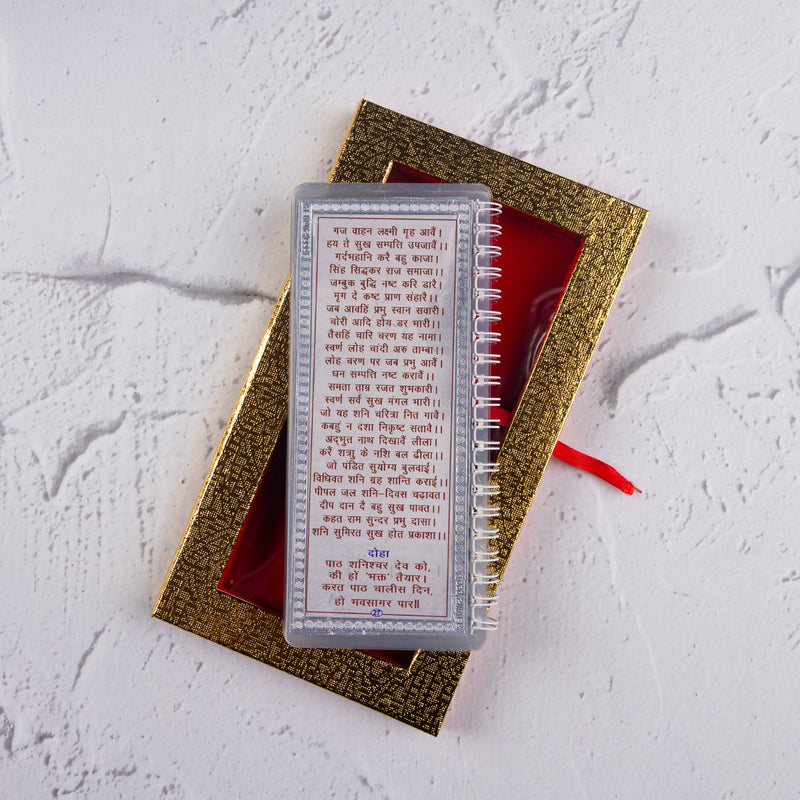 गज वाहन लक्ष्मी गृह आवैं।
हय ते सुख सम्पत्ति उपजावैं।।
गर्दभहानि करै बहु काजा।
सिंह सिद्धकर राज समाजा।।
जम्बुक बुद्धि नष्ट करि डारै।
मृग दे कष्ट प्राण संहारै।।
जब आवहिं प्रभु स्वान सवारी।
चोरी आदि होय डर भारी।।
तैसहिं चारि चरण यह नामा।
स्वर्ण लोह चांदी अरु ताम्बा।।
लोह चरण पर जब प्रभु आवैं।
धन सम्पत्ति नष्ट करावैं।।
समता ताम्र रजत शुभकारी।
स्वर्ण सर्व सुख मंगल भारी।।
जो यह शनि चरित्रा नित गावै।
कबहुं न दशा निकृष्ट सतावै।।
अद्भुत नाथ दिखावैं लीला।
करैं शत्राु के नशि बल ढीला।।
जो पंडित सुयोग्य बुलवाई।
विधिवत शनि ग्रह शान्ति कराई।।
पीपल जल शनि-दिवस चढ़ावत।
दीप दान दै बहु सुख पावत।।
कहत राम सुन्दर प्रभु दासा।
शनि सुमिरत सुख होत प्रकाशा।।
दोहा
पाठ शनिश्चर देव को,
की हों 'भक्त' तैयार।
करत पाठ चालीस दिन,
हो भवसागर पार॥
27